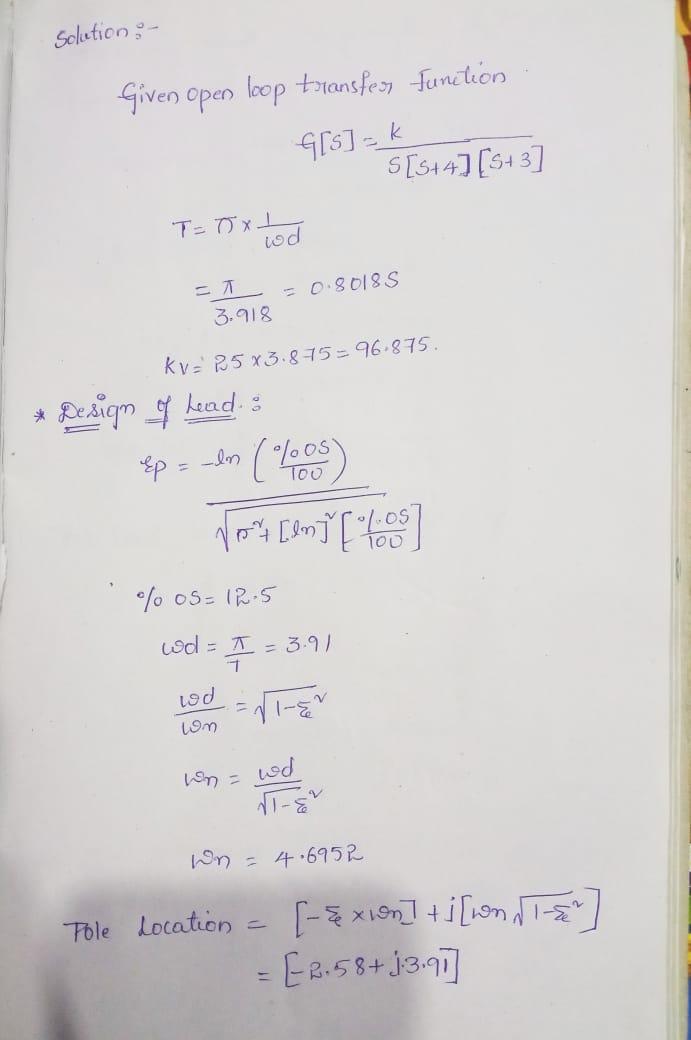 Solution :-
Given open loop transfer function
G[S] = k / S[S+4][S+3]
T = π × 1/ωd
= π / 3.918 = 0.8018S
Kv = 25 × 3.875 = 96.875.
* Design of Lead :
ξp = -ln (%OS/100) / √π²+[ln]²[%OS/100]
% OS = 12.5
ωd = π/T = 3.91
ωd/ωn = √1-ξ²
ωn = ωd/√1-ξ²
ωn = 4.6952
Pole Location = [-ξ × ωn] + j[ωn √1-ξ²]
= [-2.58 + j3.91]